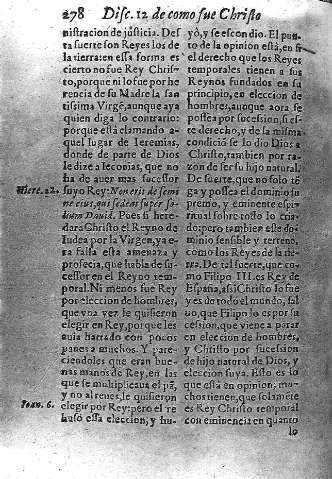 278 Disc. 12 de como fue Christo
nistracion de justicia. Des
ta suerte son Reyes los de
la tierra: en essa forma es
cierto no fue Rey Chris-
to, porque ni lo fue por he
rencia de su Madre la san
tissima Virgē, aunque aya
quien diga lo contrario:
porque està clamando a-
quel lugar de Ieremias,
donde de parte de Dios
le dize a Ieconias, que no
ha de auer mas sucessor
suyo Rey: Non erit de semi
ne eius, qui sedeat super so
lium Dauid. Pues si here-
dara Christo el Reyno de
Iudea por la Virgen, ya e-
ra falsa esta amenaza y
profecia, que habla de su-
cessor en el Reyno tem-
poral. Ni menos fue Rey
por eleccion de hombres,
que vna vez le quisieron
elegir en Rey, porque les
auia hartado con pocos
panes a muchos. Y pa-
reciendoles que eran bue-
nas manos de Rey, en las
que se multiplicaua el pā,
y no al reues, le quisieron
elegir por Rey: pero el re
husò essa eleccion, y hu-
Hiere. 22.
Ioan. 6.
yò, y se escondio. El pun-
to de la opinion està, en si
el derecho que los Reyes
temporales tienen a sus
Reynos fundados en su
principio, en eleccion de
hombres, aunque aora se
possea por sucession, si es-
te derecho, y de la misma
condició se lo dio Dios a
Christo, tambien por ra-
zon de ser su hijo natural.
De suerte, que no solo tē
ga y possea el dominio su
premo, y eminente espiri-
tual sobre todo lo cria-
do: pero tambien este do-
minio sensible y terreno,
como los Reyes de la tie-
rra. De tal suerte, que co-
mo Filipo III. es Rey de
España, assi Christo lo fue
y es de todo el mundo, sal
uo, que Filipo lo es por su
cession, que viene a parar
en eleccion de hombres,
y Christo por sucession
de hijo natural de Dios, y
eleccion suya. Esto es lo
que està en opinion; mu-
chos tienen, que solamēte
es Rey Christo temporal
con eminencia en quanto
lo